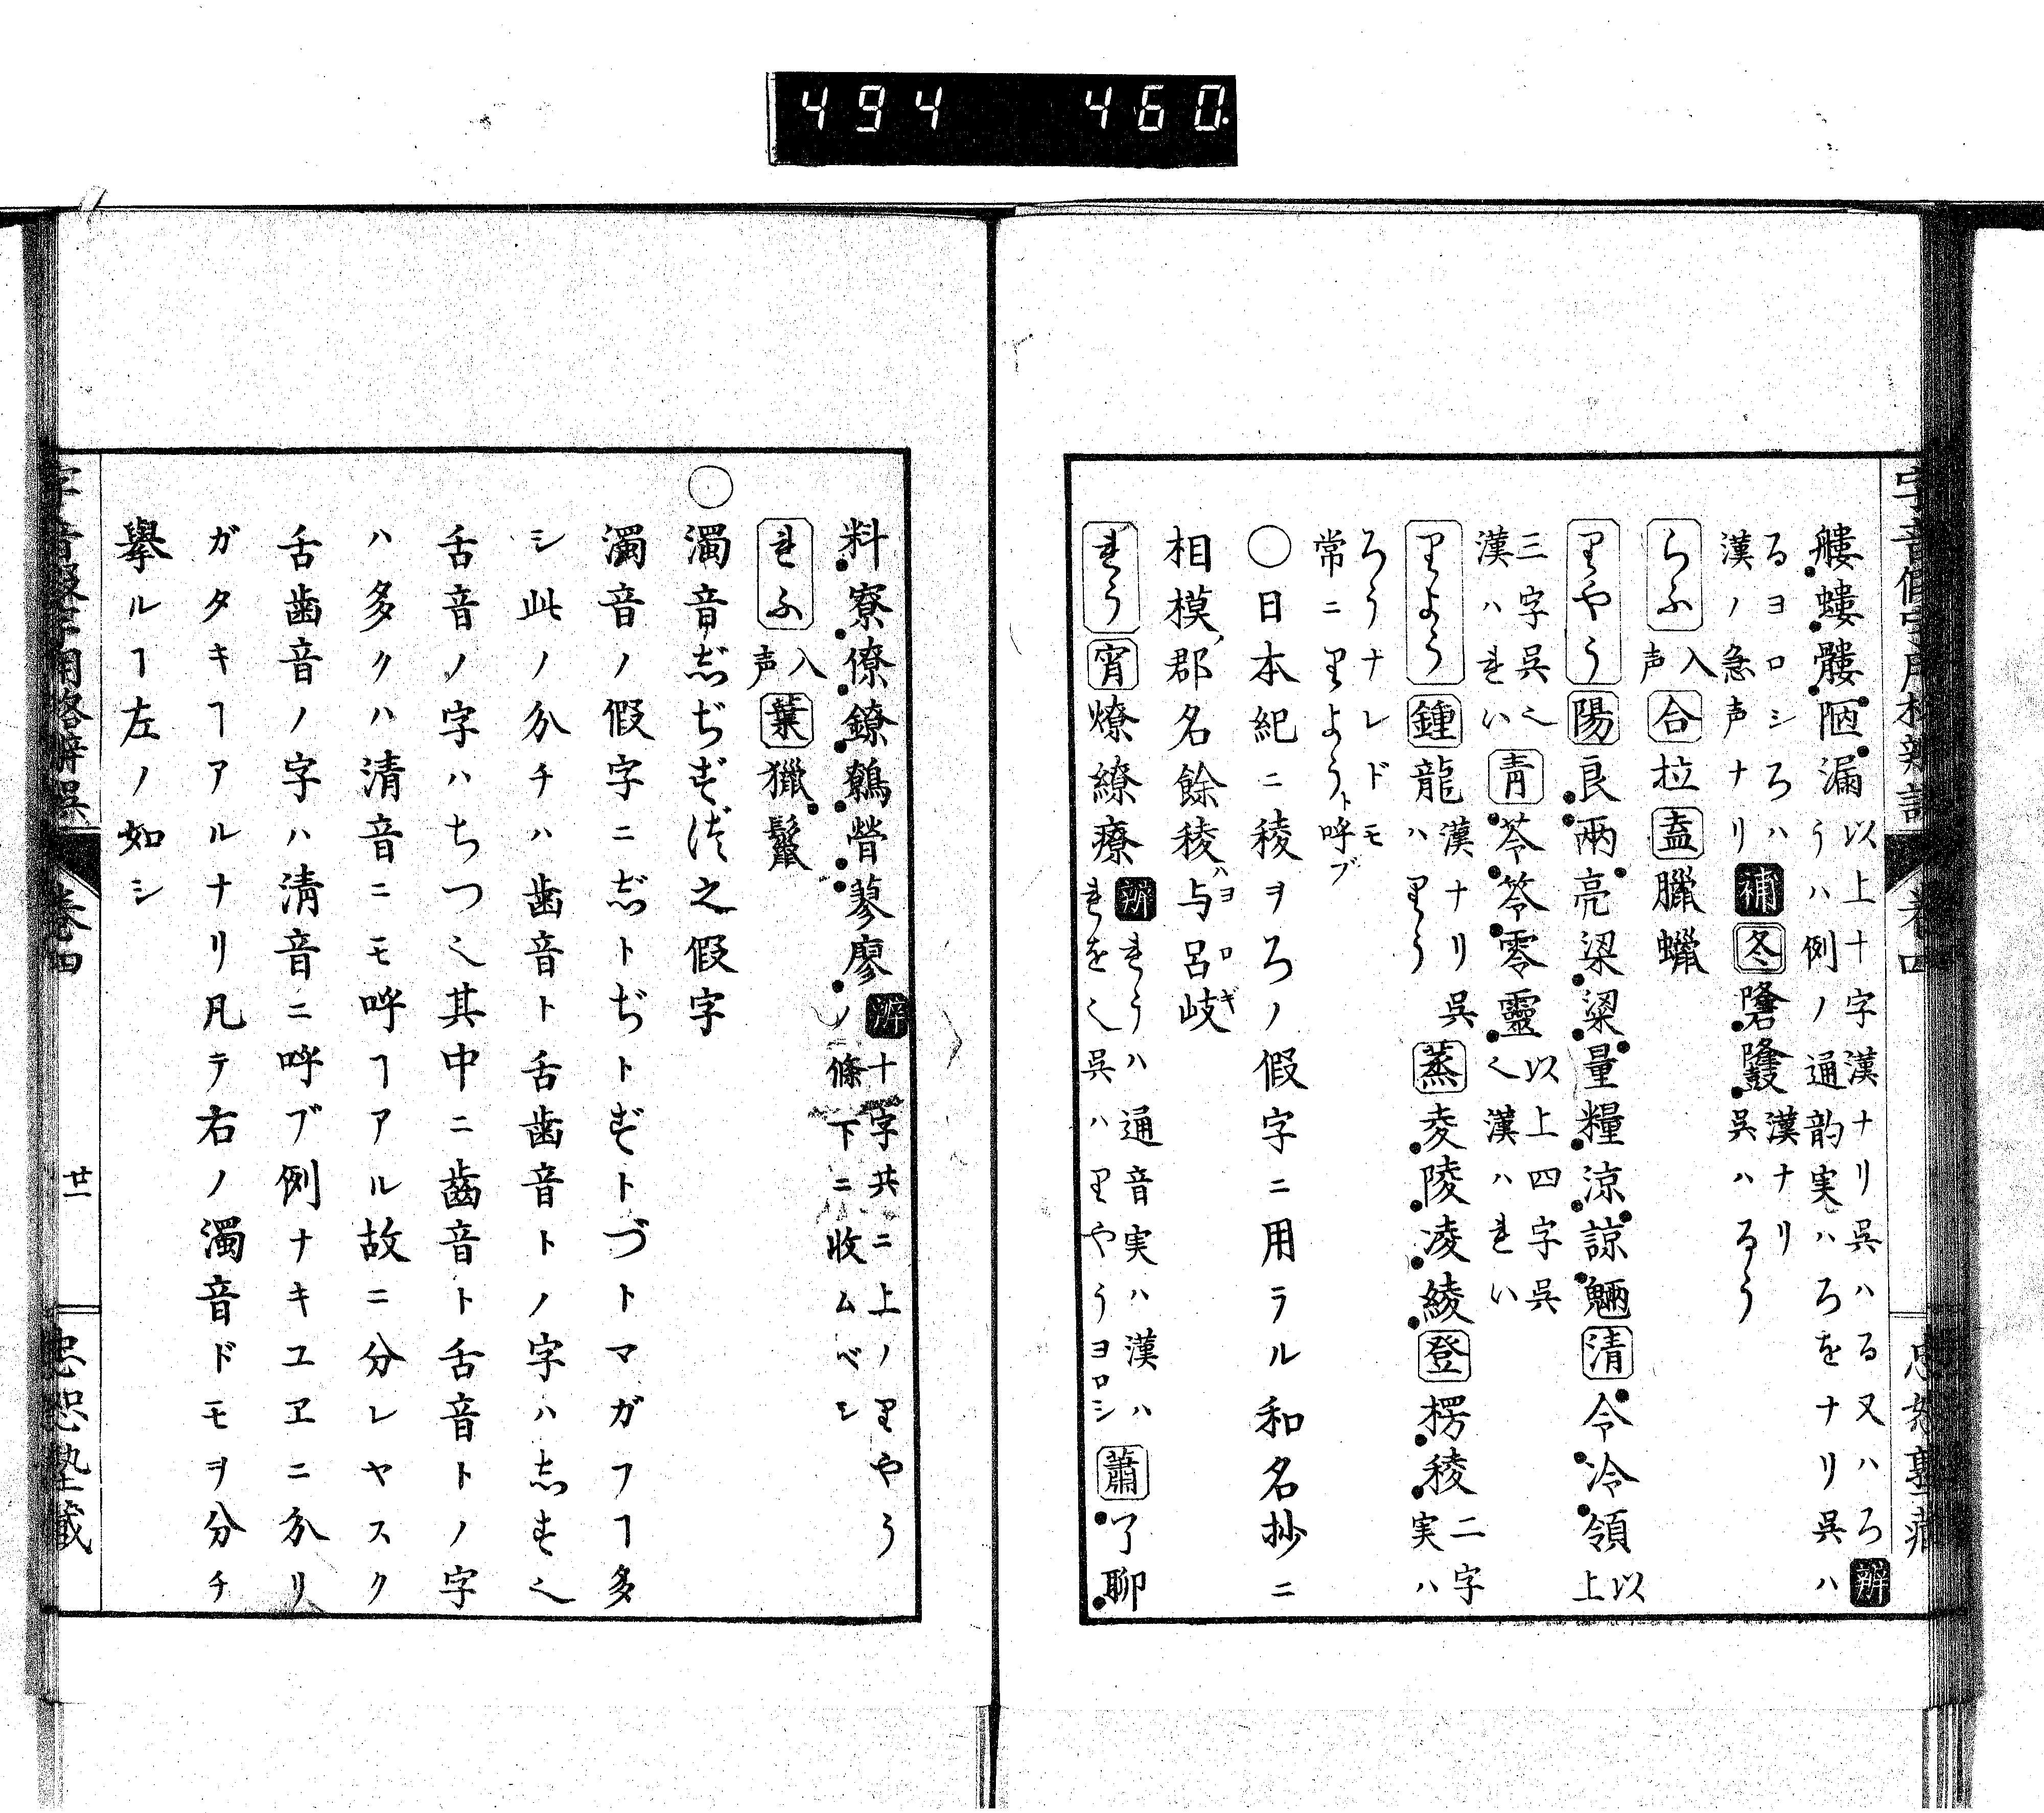 494 460
艛螻髏陋漏以上十字漢ナリ呉ハる又ハろ辨
うハ例ノ通韵実ハろをナリ呉ハ
るヨロシろハ
漢ノ急声ナリ補冬漢ナリ
呉ハるう
らふ入声合拉盍臘蠟
りやう陽良兩亮梁粱量糧涼諒魎清令冷領以上
三字呉也
漢ハれい青苓笭零靈以上四字呉
也漢ハれい
りよう鍾龍漢ナリ呉
ハりう蒸夌陵凌綾登楞稜二字
実ハ
ろうナレドモ
常ニりようト呼ブ
○日本紀ニ稜ヲろノ假字ニ用ラル和名抄ニ
相模郡名餘稜ハ与呂岐ヨロギ
れう宵燎繚療辨れうハ通音実ハ漢ハ
れを也呉ハりやうヨロシ蕭了聊
料寮僚鐐鷯膋蓼廖辨十字共ニ上ノりやう
ノ條下ニ收ムベシ
れふ入声葉獵鬣
○濁音じぢずづ之假字
濁音ノ假字ニじトぢトずトづトマガフヿ多
シ此ノ分チハ歯音ト舌歯音トノ字ハしす也
舌音ノ字ハちつ也其中ニ齒音ト舌音トノ字
ハ多クハ清音ニモ呼ヿアル故ニ分レヤスク
舌歯音ノ字ハ清音ニ呼ブ例ナキユヱニ分リ
ガタキヿアルナリ凡テ右ノ濁音ドモヲ分チ
擧ルヿ左ノ如シ
字音假字用格辨誤 卷四 廿一 忠恕塾藏